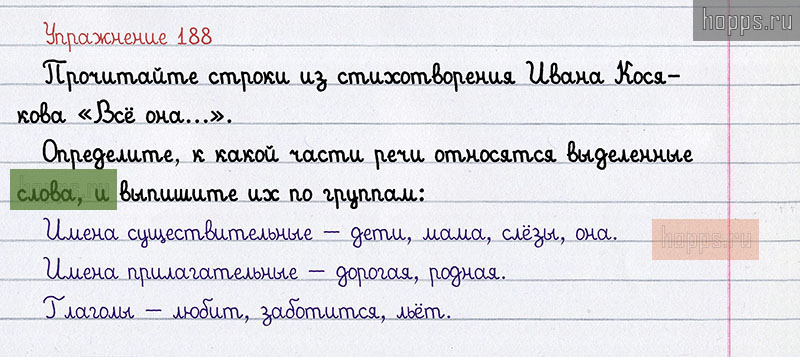 hopps.ru
Упражнение 188
Прочитайте строки из стихотворения Ивана Кося-
кова «Всё она...».
Определите, к какой части речи относятся выделенные
слова, и выпишите их по группам:
Имена существительные – дети, мама, слёзы, она.
hopps.ru
Имена прилагательные – дорогая, родная.
Глаголы – любит, заботится, льёт.